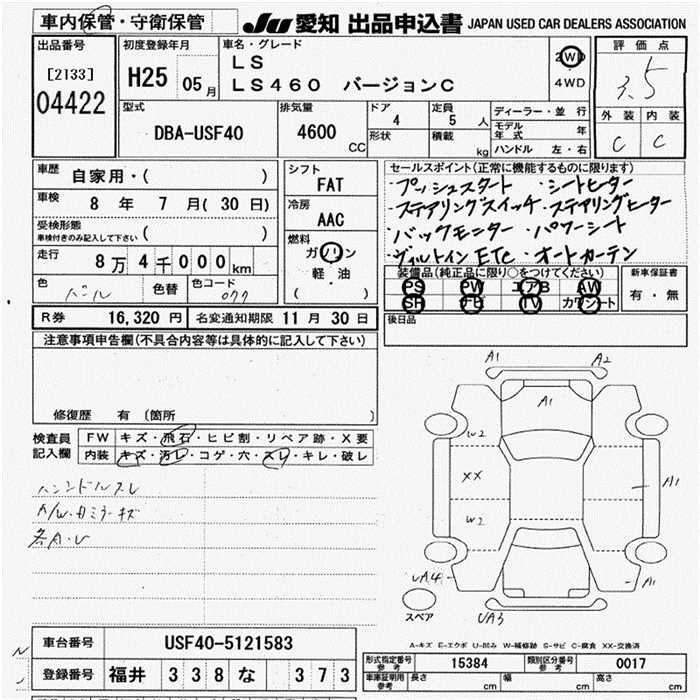 車内保管・守衛保管
JU 愛知 出品申込書 JAPAN USED CAR DEALERS ASSOCIATION
出品番号
[2133]
04422
初度登録年月
H25 05月
車名・グレード
LS
LS460 バージョンC
2WD
4WD
評価点
3.5
外装 内装
C C
型式
DBA-USF40
排気量
4600 CC
ドア
4
形状
定員
5 人
積載 kg
ディーラー・並行
モデル年式 年
ハンドル 左・右
車歴
自家用・( )
車検
8 年 7 月(30日)
受検形態
車検付きのみ記入して下さい ( )
走行
8万4千000km
色
パール
色替
色コード
077
シフト
FAT
冷房
AAC
燃料
ガソリン
軽・油
( )
セールスポイント(正常に機能するものに限ります)
・プッシュスタート ・シートヒーター
・ステアリングスイッチ ・ステアリングヒーター
・バックモニター ・パワーシート
・ビルトインETC ・オートカーテン
装備品(純正品に限り○をつけてください)
PS PW エアB AW
SR ナビ TV カワシート
新車保証書
有・無
後日品
R券 16,320円 名変通知期限 11月30日
注意事項申告欄(不具合内容等は具体的に記入して下さい)
修復歴 有 〔箇所 〕
検査員記入欄
FW キズ・飛石・ヒビ割・リペア跡・X要
内装 キズ・汚レ・コゲ・穴・スレ・キレ・破レ
ハンドルスレ
A/W・カミラーキズ
各A・U
A1 A2
A1
W2
XX
A1
W2
UA4
A1
スペア
UA3
A-キズ E-エクボ U-凹み W-補修跡 S-サビ C-腐食 XX-交換済
車台番号 USF40-5121583
登録番号 福井 338 な 373
形式指定番号 参考 15384 類別区分番号 参考 0017
車庫証明用 参考 長さ cm 幅 cm 高さ cm